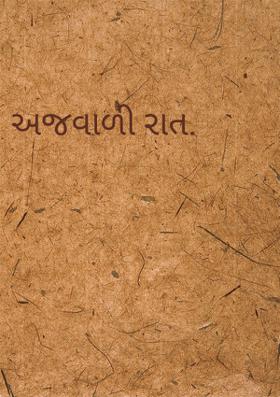 અજવાળી રાત.